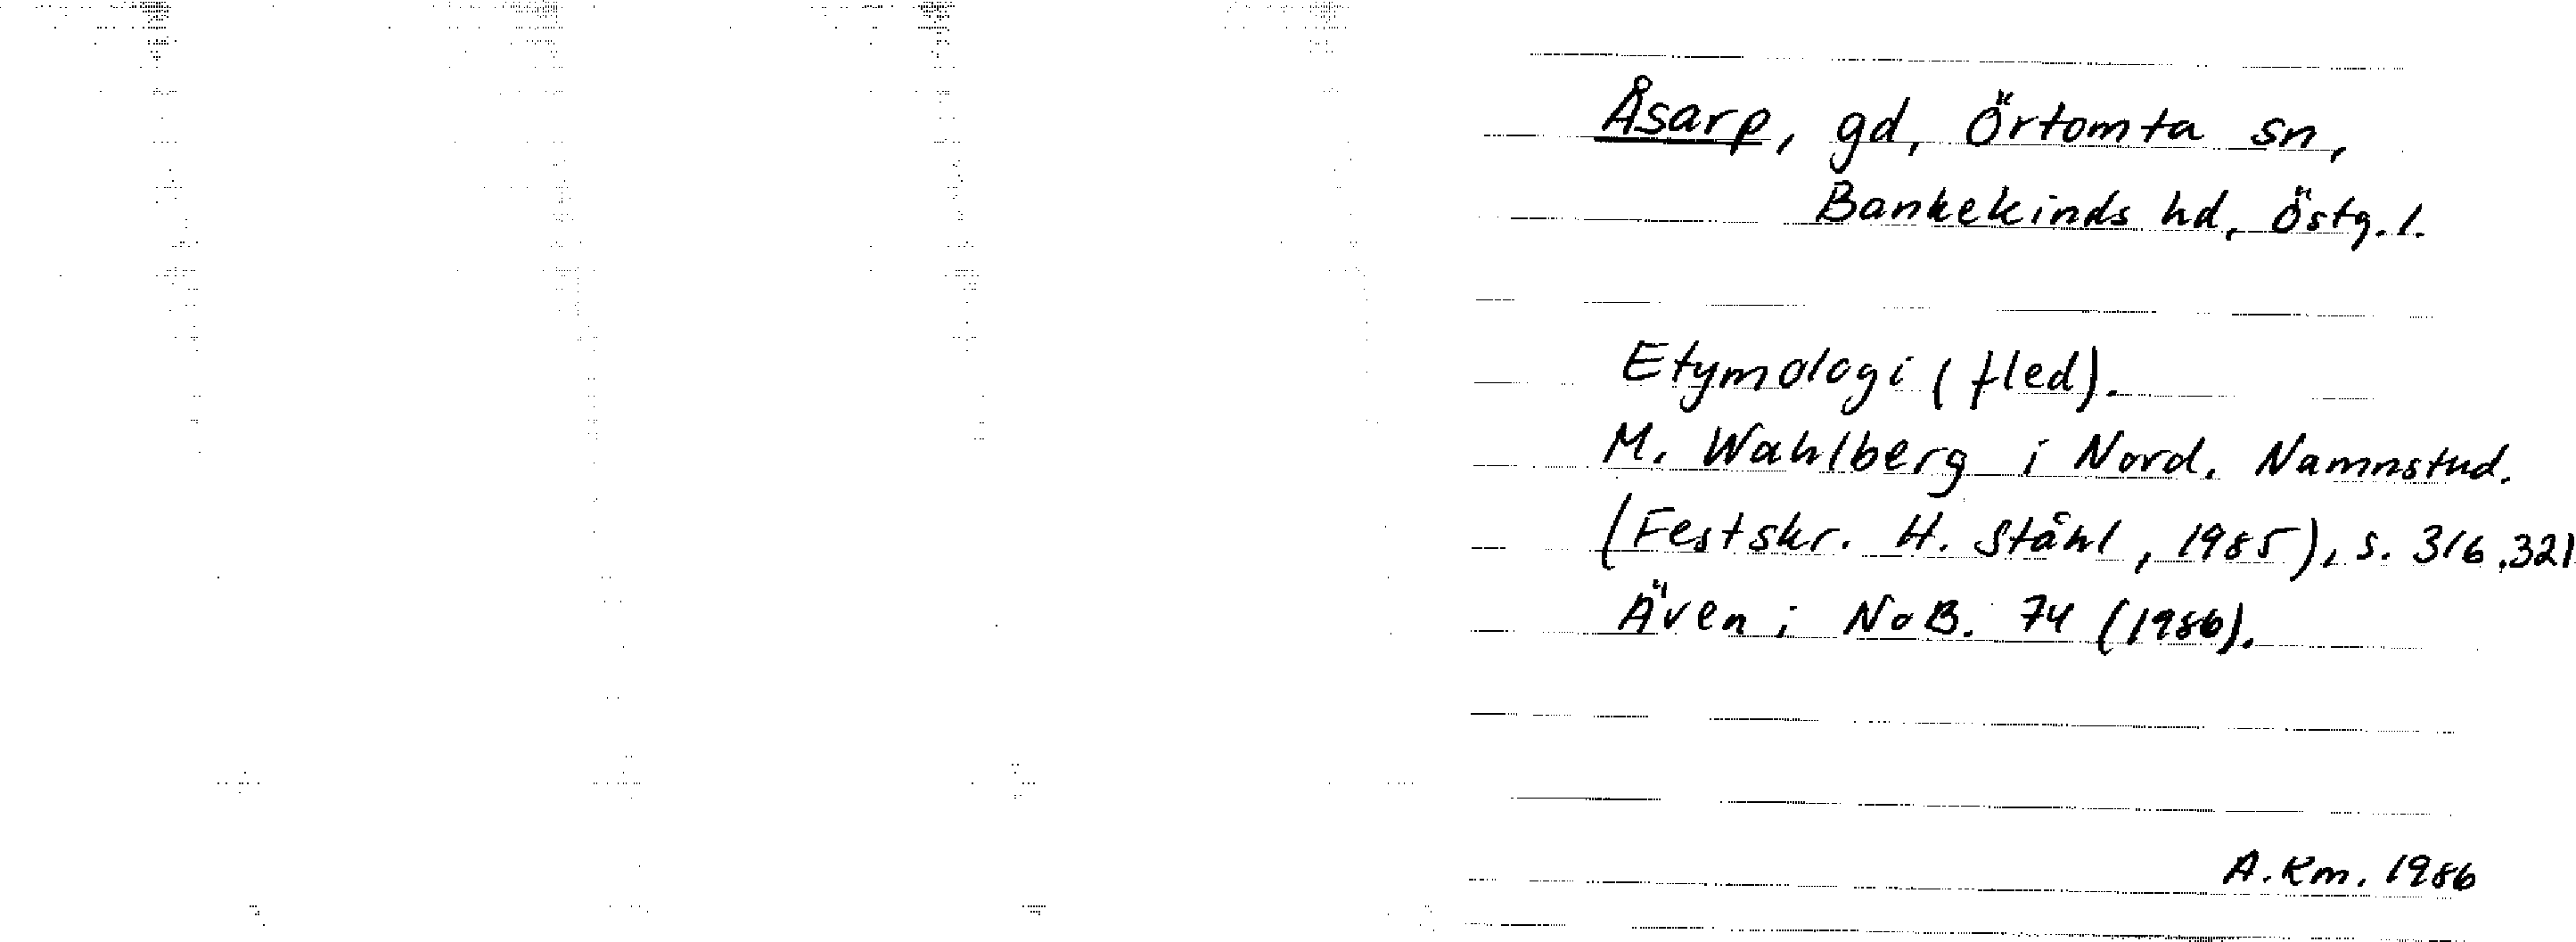 Åsarp, gd, Örtomta sn,
Bankekinds hd, Östg. l.
Etymologi (fled).
M. Wahlberg i Nord. Namnstud.
(Festskr. H. Ståhl, 1985), s. 316, 321
Även i NoB. 74 (1986).
A. Km. 1986